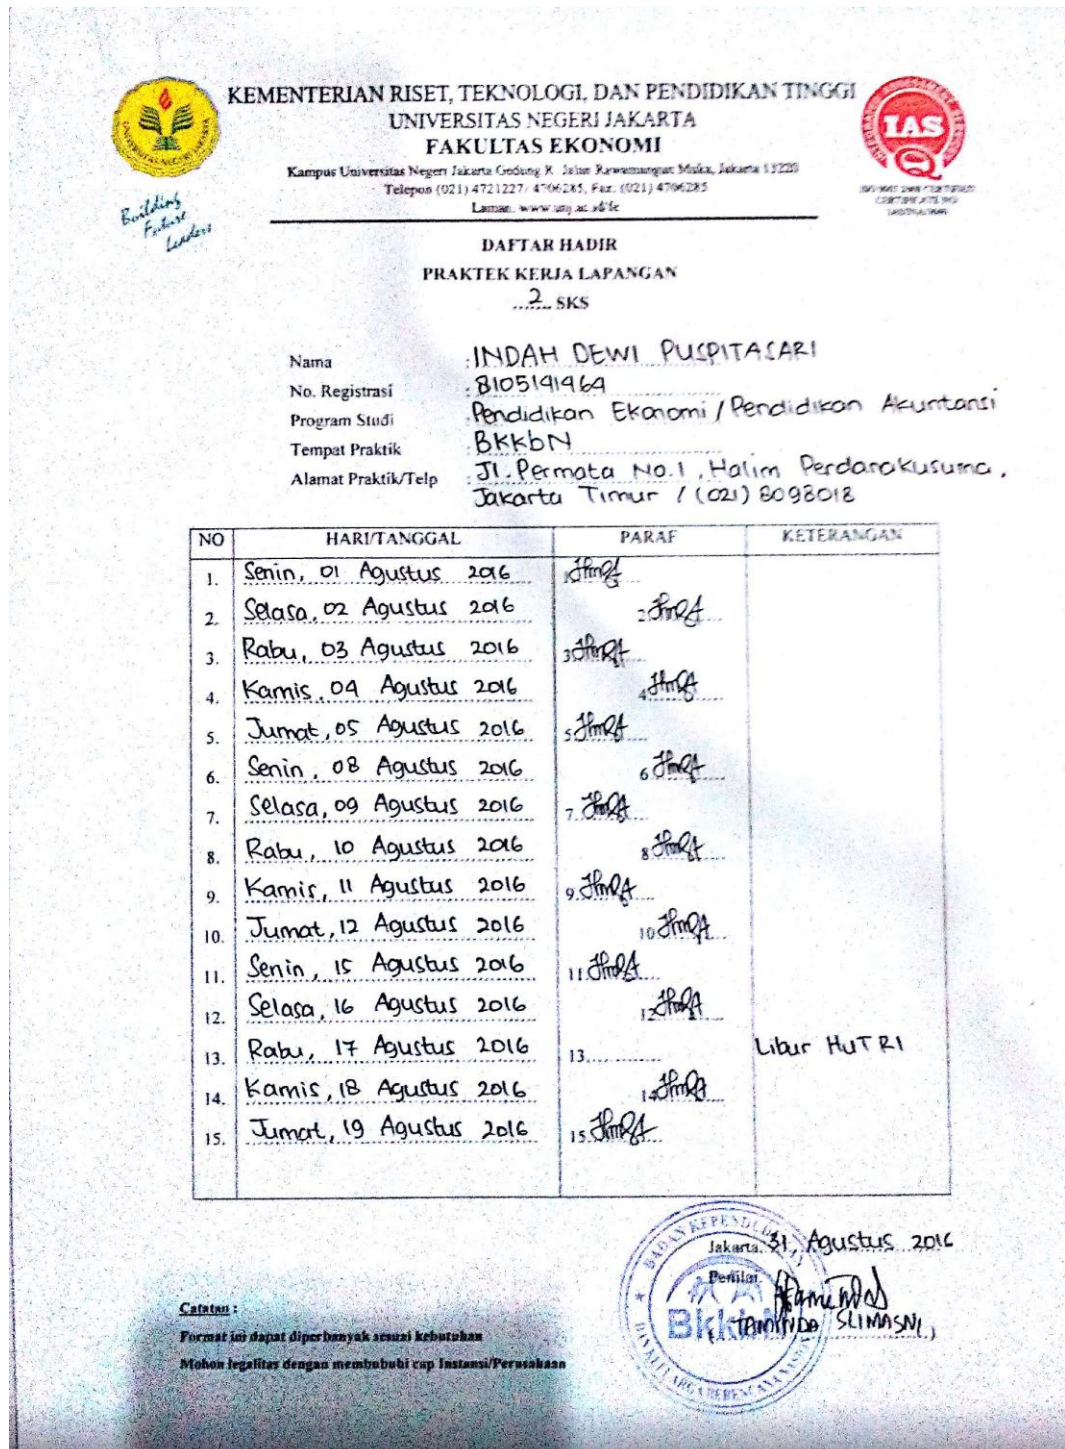 KEMENTERIAN RISET, TEKNOLOGI, DAN PENDIDIKAN TINGGI
UNIVERSITAS NEGERI JAKARTA
FAKULTAS EKONOMI
Kampus Universitas Negeri Jakarta Gedung R. Jalan Rawamangun Muka, Jakarta 13220
Telepon (021) 4721227/ 4706285, Fax. (021) 4706285
Laman: www.unj.ac.id/fe
Building
Future
Leaders
IAS
DAFTAR HADIR
PRAKTEK KERJA LAPANGAN
...2... SKS
Nama : INDAH DEWI PUSPITASARI
No. Registrasi : 8105141464
Program Studi : Pendidikan Ekonomi / Pendidikan Akuntansi
Tempat Praktik : BKKbN
Alamat Praktik/Telp : Jl. Permata No.1, Halim Perdanakusuma,
Jakarta Timur / (021) 8098018
NO HARI/TANGGAL PARAF KETERANGAN
1. Senin, 01 Agustus 2016 1
2. Selasa, 02 Agustus 2016 2
3. Rabu, 03 Agustus 2016 3
4. Kamis, 04 Agustus 2016 4
5. Jumat, 05 Agustus 2016 5
6. Senin, 08 Agustus 2016 6
7. Selasa, 09 Agustus 2016 7
8. Rabu, 10 Agustus 2016 8
9. Kamis, 11 Agustus 2016 9
10. Jumat, 12 Agustus 2016 10
11. Senin, 15 Agustus 2016 11
12. Selasa, 16 Agustus 2016 12
13. Rabu, 17 Agustus 2016 13 Libur HUT RI
14. Kamis, 18 Agustus 2016 14
15. Jumat, 19 Agustus 2016 15
Jakarta, 31, Agustus 2016
Penilai,
BADAN KEPENDUDUKAN
Bkkbn
Catatan :
Format ini dapat diperbanyak sesuai kebutuhan
Mohon legalitas dengan membubuhi cap Instansi/Perusahaan